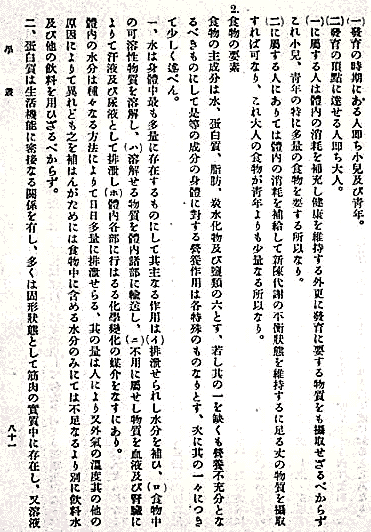 (一)發育の時期にある人卽ち小兒及び靑年。
(二)發育の頂點に達せる人卽ち大人。
(一)に屬する人は體內の消耗を補充し健康を維持する外更に發育に要する物質をも攝取せざるべからず
これ小兒、靑年の特に多量の食物を要する所以なり。
(二)に屬する人にありては體內の消耗を補給して新陳代謝の平衡狀態を維持するに足る丈の物質を攝取
すれば可なり、これ大人の食物が靑年よりも少量なる所以なり。
2. 食物の要素
食物の主成分は水、蛋白質、脂肪、炭水化物及び鹽類の六とす、若し其の一を缺くも營養不充分とな
るべきものにして是等の成分の身體に對する營養作用は各特殊のものなりとす、次に其の一々につき
て少しく述べん。
一、水は身體中最も多量に存在するものにして其主なる作用は(イ)排泄せられし水分を補ひ、(ロ)食物中
の可溶性物質を溶解し、(ハ)溶解せる物質を體內諸部に輸送し、(ニ)不用に屬せし物質を血液及び腎臟に
よりて汗液及び尿液として排泄し(ホ)體內各部に行はるる化學變化の媒介をなすにあり。
體內の水分は種々なる方法によりて日日多量に排泄せらる、其の量は人により又外氣の溫度其の他の
原因によりて異れども之を補はんがためには食物中に含める水分のみにては不足なるより別に飮料水
及び他の飮料を用ひざるべからず。
二、蛋白質は生活機能に密接なる關係を有し、多くは固形狀態として筋肉の實質中に存在し、又溶液
學叢
八十一